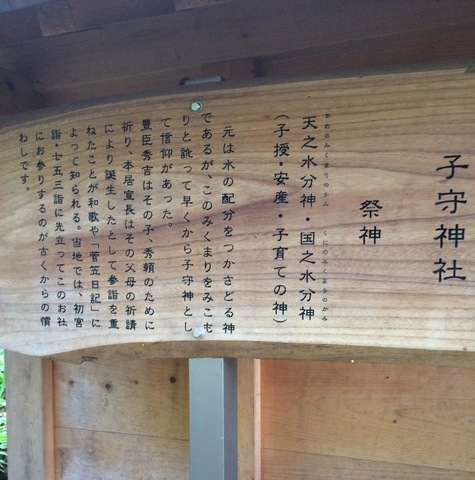 子守神社
祭神
天之水分神・国之水分神
あめのみくまりのかみ
くにのみくまりのかみ
(子授・安産・子育ての神)
元は水の配分をつかさどる神
であるが、このみくまりをみこも
りと訛って早くから子守神とし
て信仰があった。
豊臣秀吉はその子、秀頼のために
祈り、本居宣長はその父母の祈請
により誕生したとして参詣を重
ねたことが和歌や「菅笠日記」に
よって知られる。当地では、初宮
詣・七五三詣に先立ってこのお社
にお参りするのが古くからの慣
わしです。